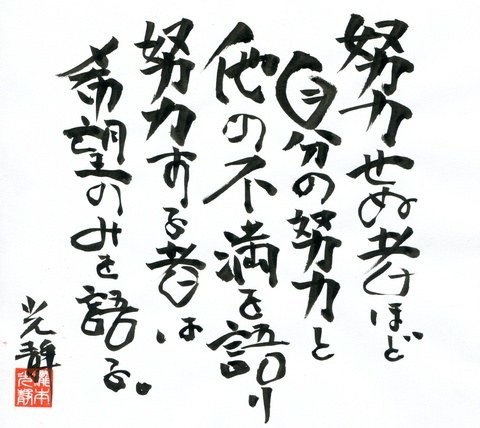 努力せぬ者ほど
自分の努力と
他の不満を語り
努力する者は
希望のみを語る。
光静